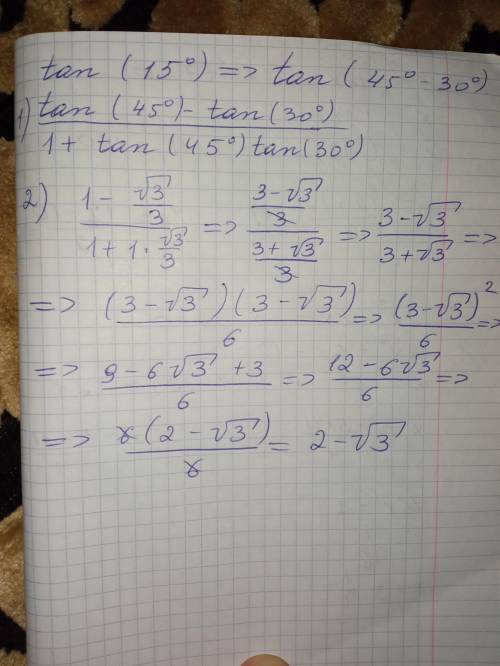 tan (15°) => tan (45° - 30°)
1) (tan (45°) - tan (30°)) / (1 + tan (45°) tan (30°))
2) (1 - √3/3) / (1 + 1 · √3/3) => ((3 - √3)/3) / ((3 + √3)/3) => (3 - √3) / (3 + √3) =>
=> ((3 - √3)(3 - √3)) / 6 => (3 - √3)² / 6 =>
=> (9 - 6√3 + 3) / 6 => (12 - 6√3) / 6 =>
=> (6(2 - √3)) / 6 = 2 - √3